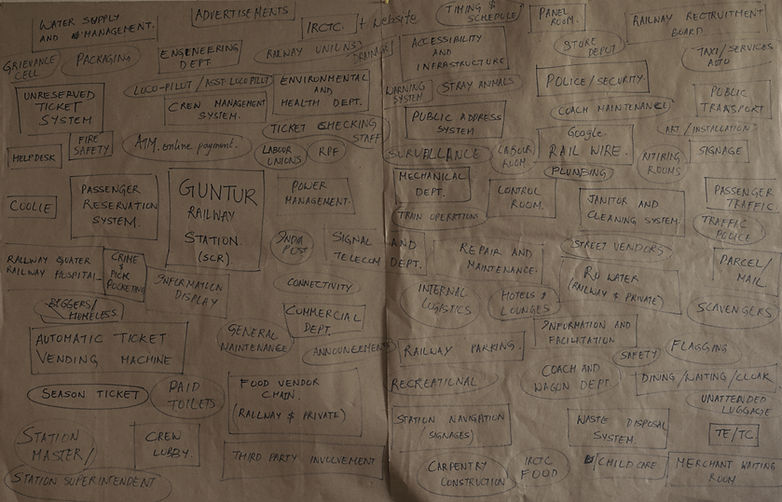 WATER SUPPLY
AND MANAGEMENT.
ADVERTISEMENTS
IRCTC. + website
TIMING &
SCHEDULE
PANEL
ROOM.
RAILWAY RECRUITMENT
BOARD
GRIEVANCE
CELL
PACKAGING
ENGENEERING
DEPT
RAILWAY UNIUNS
DRAINAGE
ACCESSIBILITY
AND
INFRASTRUCTURE
STORE
DEPOT
TAXI/SERVICES
AUTO
UNRESERVED
TICKET
SYSTEM
LOCO-PILOT/ASST LOCO PILOT
CREW MANAGEMENT
SYSTEM.
ENVIRONMENTAL
AND
HEALTH DEPT.
WARNING
SYSTEM
STRAY ANIMALS
POLICE/SECURITY.
PUBLIC
TRANSPORT
COACH MAINTENANCE
PUBLIC ADDRESS
SYSTEM
TICKET CHECKING
STAFF
ART/INSTALLATION
HELPDESK
FIRE
SAFETY
ATM. online payment.
LABOUR
UNIONS
RPF
SURVALLANCE
LABOUR
ROOM
Google
RAIL WIRE.
RITIRING
ROOMS
SIGNAGE
PLUMBING
COOLIE
PASSENGER
RESERVATION
SYSTEM.
GUNTUR
RAILWAY
STATION.
(SCR)
POWER
MANAGEMENT.
MECHANICAL
DEPT.
CONTROL
ROOM.
JANITOR AND
CLEANING SYSTEM.
PASSENGER
TRAFFIC.
TRAIN OPERATIONS
TRAFFIC
POLICE
RAILWAY QUATER
RAILWAY HOSPITAL
CRIME
&
PICK
POCKETING
INFORMATION
DISPLAY
INDIA
POST
SIGNAL AND
TELECOM DEPT.
REPAIR AND
MAINTENANCE.
STREET VENDORS
RO WATER
(RAILWAY & PRIVATE)
PARCEL/
MAIL
CONNECTIVITY
BIGGERS/
HOMELESS
INTERNAL
LOGISTICS
HOTELS &
LOUNGES
SCAVENGERS
AUTOMATIC TICKET
VENDING MACHINE
GENERAL
MAINTENANCE
COMMERCIAL
DEPT.
ANNOUNCEMENTS
RAILWAY PARKING.
INFORMATION AND
FACILITATION
SAFETY
FLAGGING
SEASON TICKET
PAID
TOILETS
FOOD VENDOR
CHAIN.
(RAILWAY & PRIVATE)
RECREATIONAL
COACH AND
WAGON DEPT.
DINING/WAITING/CLOAK
UNATTENDED
LUGGAGE
STATION
MASTER/
STATION SUPERINTENDENT
CREW
LOBBY.
THIRD PARTY INVOLVEMENT
STATION NAVIGATION
(SIGNAGES)
WASTE DISPOSAL
SYSTEM.
TE/TC
CARPENTRY
CONSTRUCTION
IRCTC
FOOD
CHILD CARE
MERCHANT WAITING
ROOM